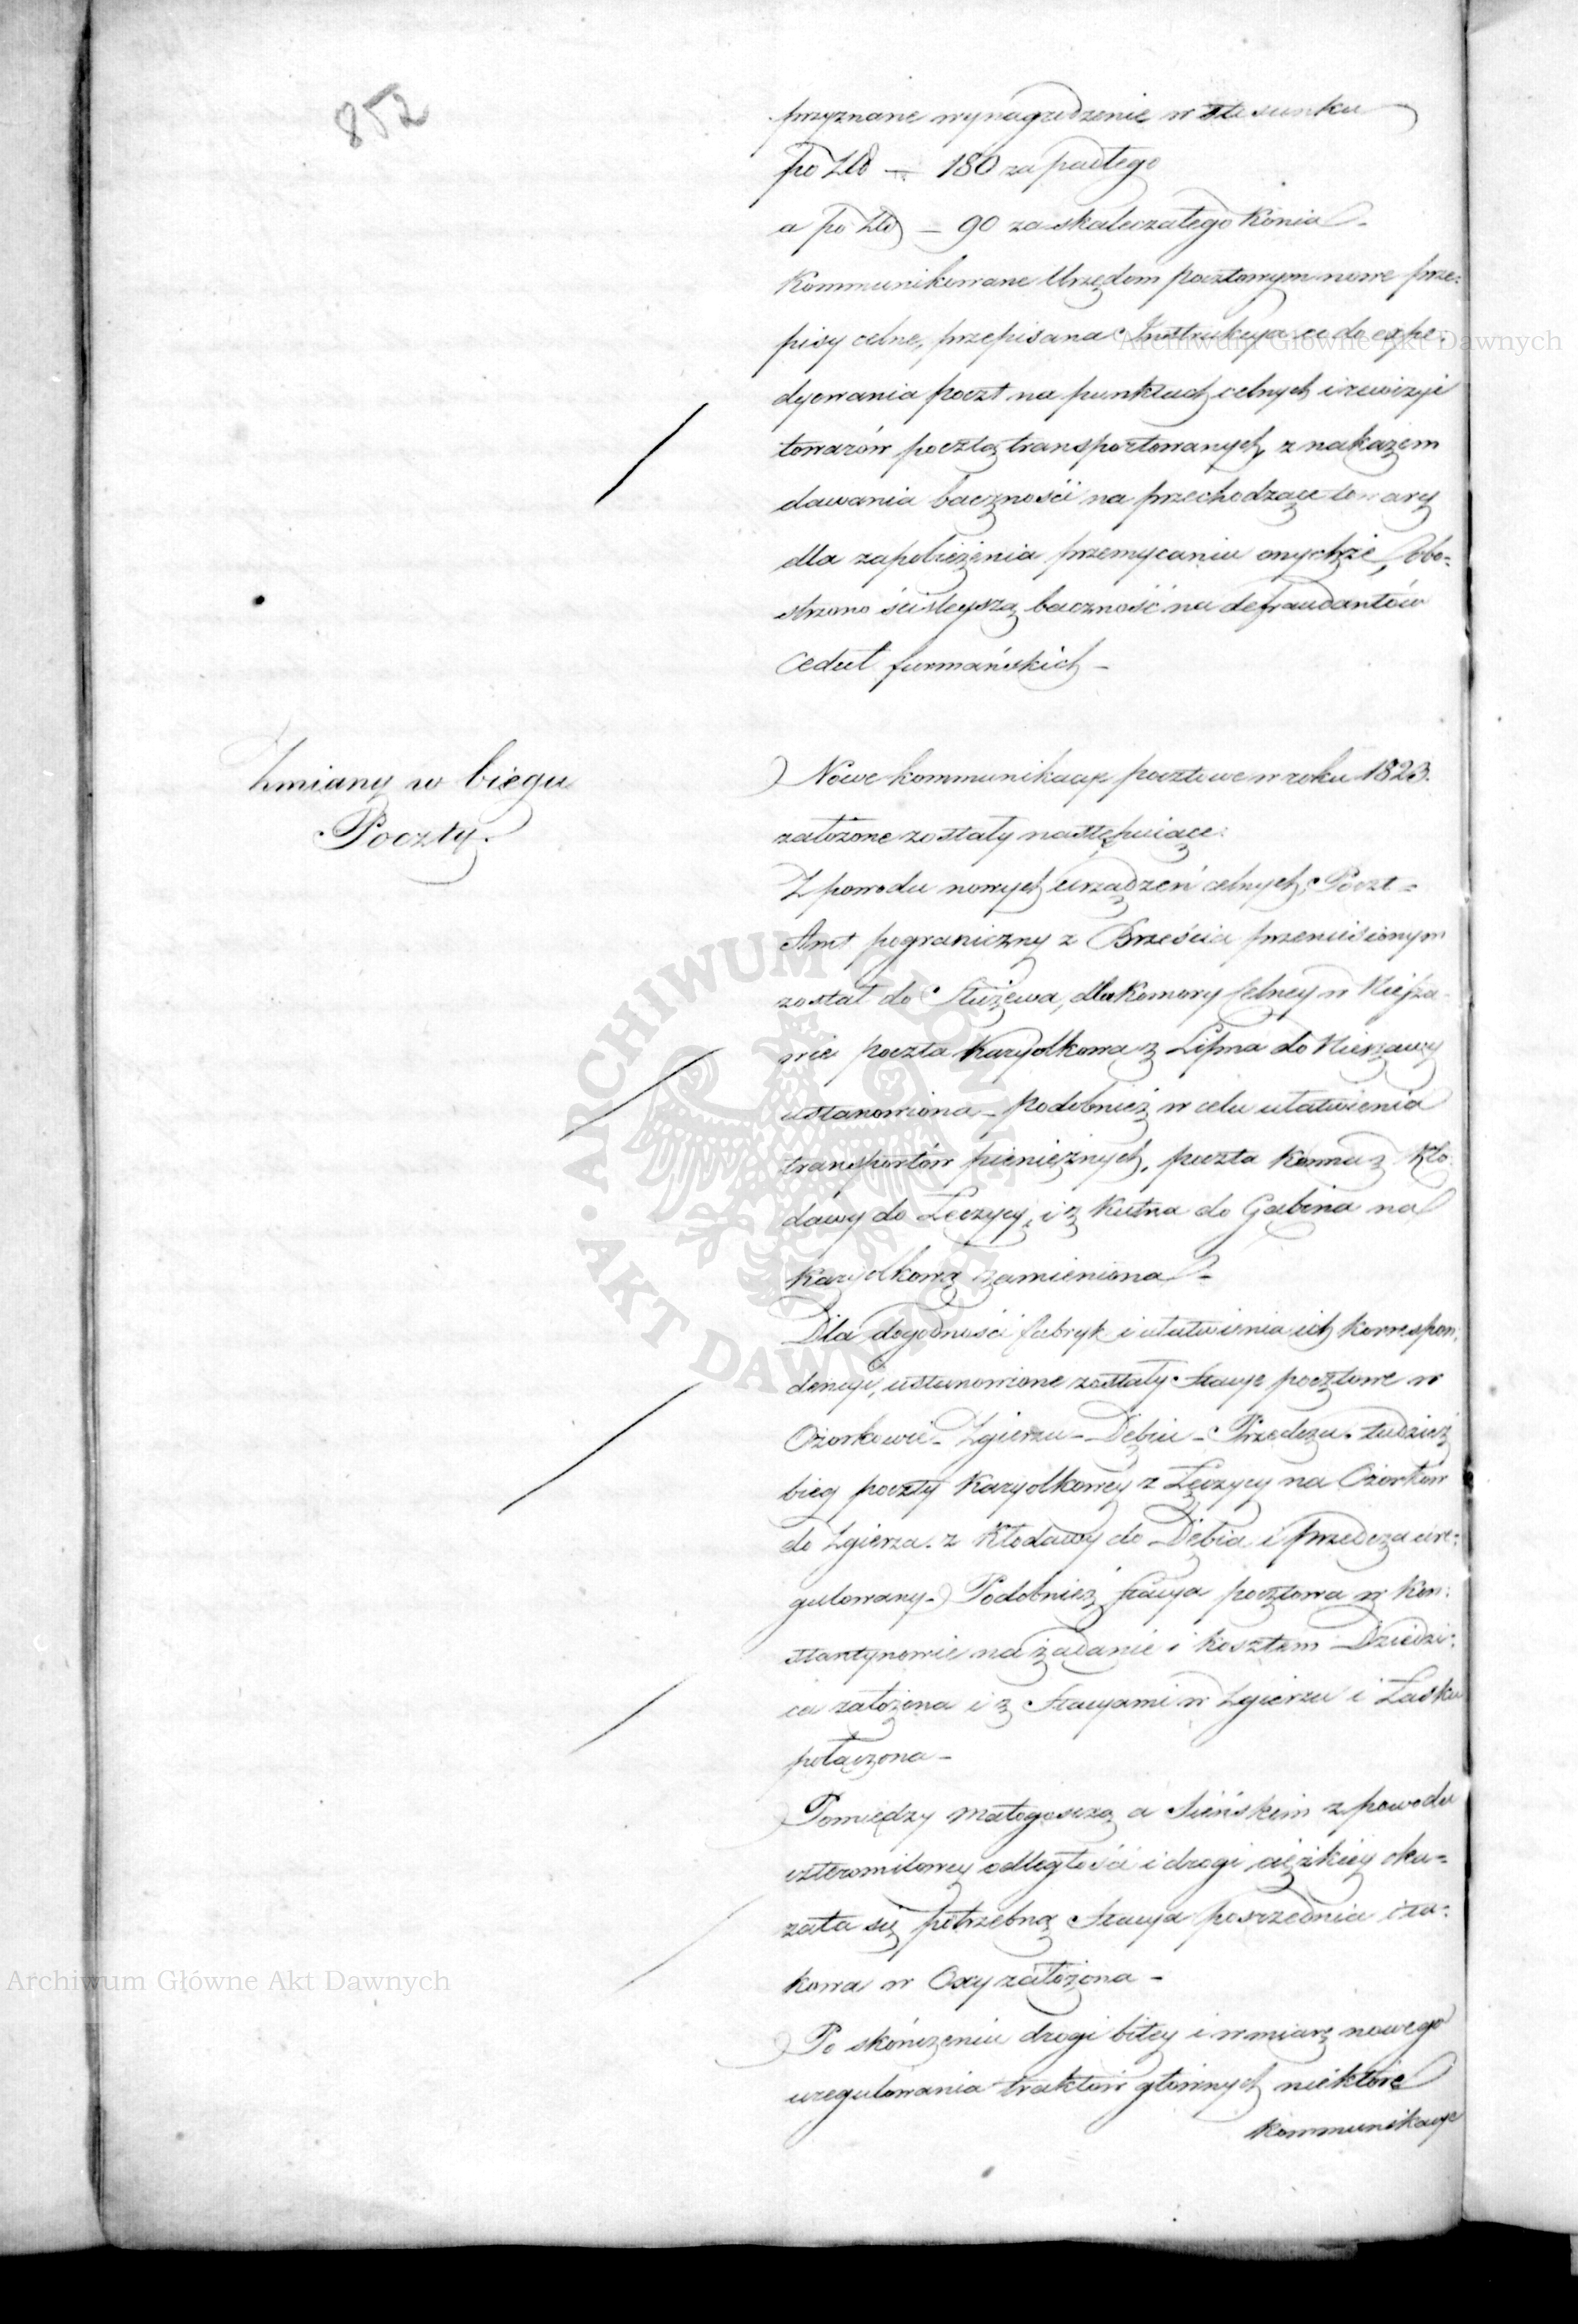 852
przyznane wynagrodzenie w stosunku
po Złł – 180 za padłego
a po Złł – 90 za skaleczałego Konia –
Kommunikowane Urzędom pocztowym nowe prze-
pisy celne, przepisana Instrukcya co do expe-
dyowania poczt na punktach celnych i rewizyi
towarów pocztą transportowanych, z nakazem
dawania baczności na przechodzące towary
dla zapobieżenia przemycaniu onychże, Obo-
strzono ściśleyszą baczność na defraudantów
Ceduł furmańskich –
Zmiany w biegu
Poczty.
Nowe kommunikacye pocztowe w roku 1823.
założone zostały następuiące:
Z powodu nowych urządzeń celnych, Poczt-
Amt pograniczny z Brześcia przeniesionym
został do Służewa, dla Komory Celney w Niesza-
wie poczta Karyolkowa z Lipna do Nieszawy
ustanowiona – podobnież w celu ułatwienia
transportów pieniężnych, poczta konna z Kło-
dawy do Łęczycy, i z Kutna do Gąbina na
Karyolkową zamieniona –
Dla dogodności fabryk i ułatwienia ich korrespon-
dencyi, ustanowione zostały Stacye pocztowe w
Ozorkowie – Zgierzu – Dębiu – Przedczu. tudzież
bieg poczty Karyolkowey z Łęczycy na Ozorków
do Zgierza. z Kłodawy do Dębia i Przedcza ure-
gulowany – Podobnież Stacya pocztowa w Kon-
stantynowie na żądanie i kosztem Dziedzi-
ca założona i z Stacyami w Zgierzu i Łasku
połączona –
Pomiędzy Małogoszczą a Sieńskiem z powodu
czteromilowey odległości i drogi ciężkiey oka-
zała się potrzebną Stacya pośrzednia i ta-
kowa w Oxy założona –
Po skończeniu drogi bitey i w miarę nowego
uregulowania traktów głównych niektóre
kommunikacye
Archiwum Główne Akt Dawnych
Archiwum Główne Akt Dawnych
ARCHIWUM GŁÓWNE
AKT DAWNYCH